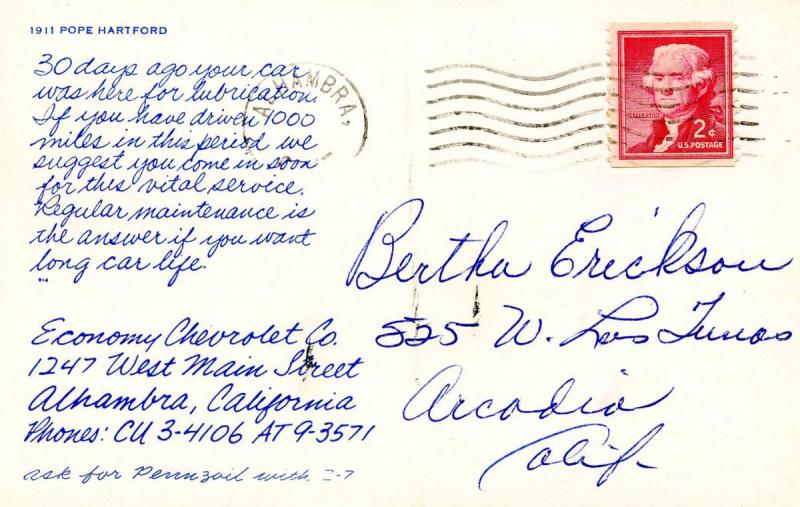 1911 POPE HARTFORD
30 days ago your car
was here for lubrication.
If you have driven 1000
miles in this period we
suggest you come in soon
for this vital service.
Regular maintenance is
the answer if you want
long car life.
Economy Chevrolet Co.
1247 West Main Street
Alhambra, California
Phones: CU 3-4106 AT 9-3571
ask for Pennzoil with Z-7
ALHAMBRA,
JEFFERSON
2¢
U.S. POSTAGE
Bertha Erickson
525 W. Las Tunas
Arcadia
Calif.